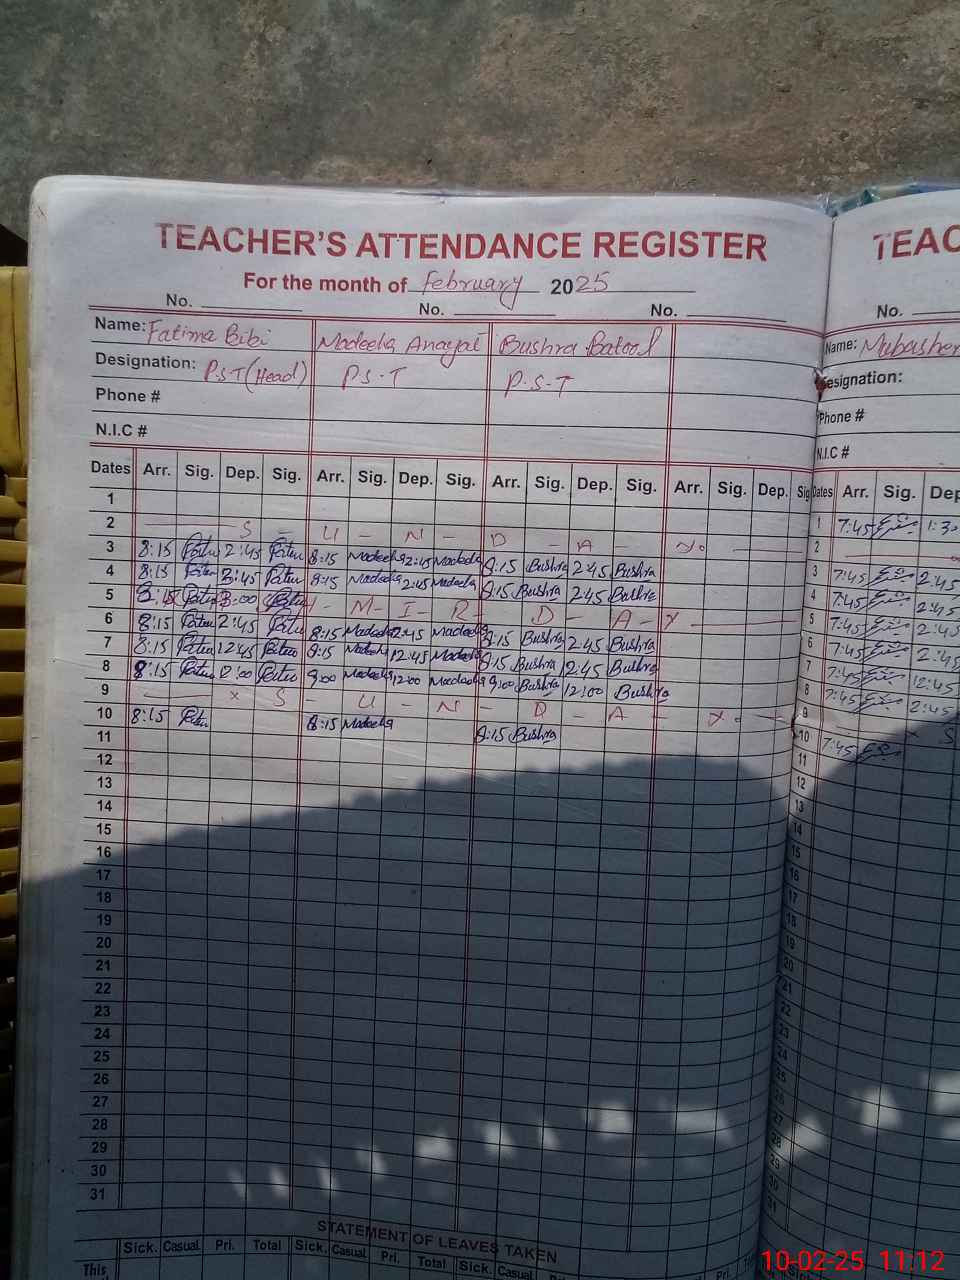 TEACHER'S ATTENDANCE REGISTER TEAC
For the month of February 2025
No. No. No. No.
Name: Fatima Bibi Madeeha Anayat Bushra Batool Name: Mubasher
Designation: P.S.T (Head) P.S.T P.S.T Designation:
Phone # Phone #
N.I.C # N.I.C #
Dates Arr. Sig. Dep. Sig. Arr. Sig. Dep. Sig. Arr. Sig. Dep. Sig. Arr. Sig. Dep. Sig Dates Arr. Sig. Dep
1 1 7:45 1:30
2 S - U - N - D - A - Y. 2
3 8:15 2:45 8:15 Madeeha 2:45 Madeeha 8:15 Bushra 2:45 Bushra 3 7:45 2:45
4 8:15 2:45 8:15 Madeeha 2:45 Madeeha 8:15 Bushra 2:45 Bushra 4 7:45 2:45
5 8:15 3:00 - M - I - R - D - A - Y 5 7:45 2:45
6 8:15 2:45 8:15 Madeeha 2:45 Madeeha 8:15 Bushra 2:45 Bushra 6 7:45 2:45
7 8:15 12:45 8:15 Madeeha 12:45 Madeeha 8:15 Bushra 12:45 Bushra 7 7:45 12:45
8 8:15 12:00 9:00 Madeeha 12:00 Madeeha 9:00 Bushra 12:00 Bushra 8 7:45 2:45
9 x S - U - N - D - A - Y. 9 S
10 8:15 8:15 Madeeha 8:15 Bushra 10 7:45
11 11
12 12
13 13
14 14
15 15
16 16
17 17
18 18
19 19
20 20
21 21
22 22
23 23
24 24
25 25
26 26
27 27
28 28
29 29
30 30
31 31
STATEMENT OF LEAVES TAKEN
Sick. Casual Pri. Total Sick. Casual Pri. Total Sick. Casual Pri. Sick
This
10-02-25 11:12